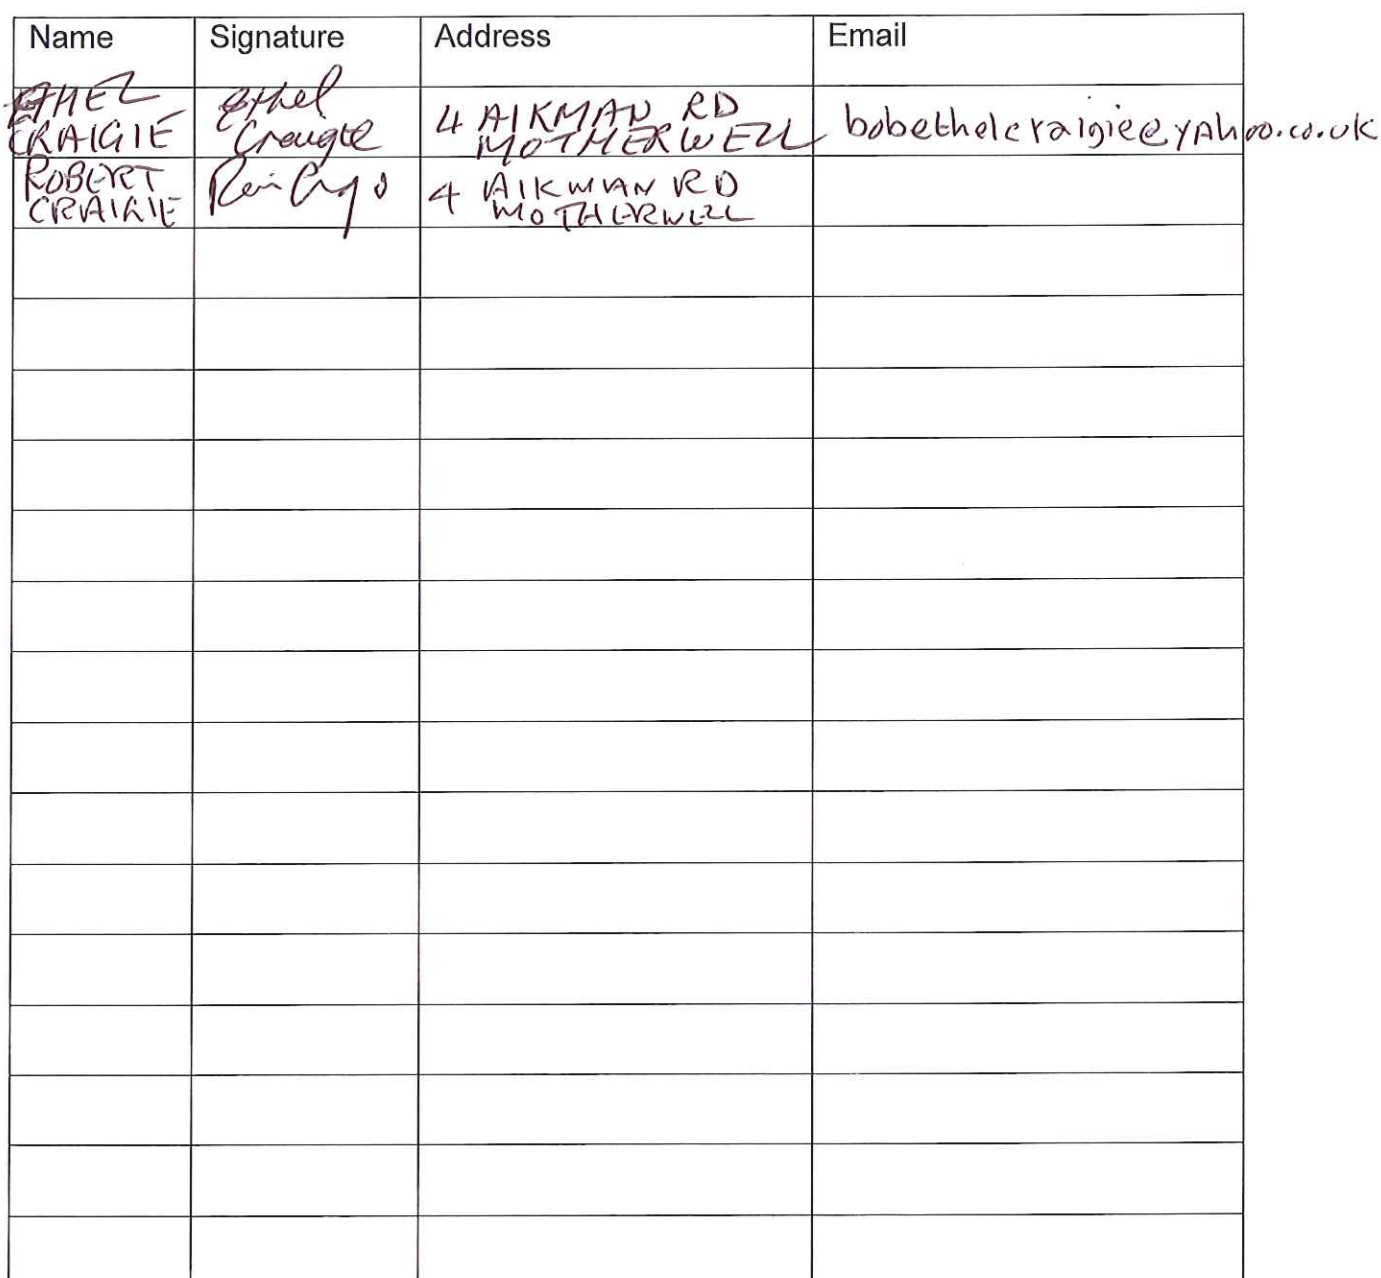 Name Signature Address Email
ETHEL
CRAIGIE
Ethel
Craigie
4 AIKMAN RD
MOTHERWELL
bobethelcraigie@yahoo.co.uk
ROBERT
CRAIGIE
4 AIKMAN RD
MOTHERWELL